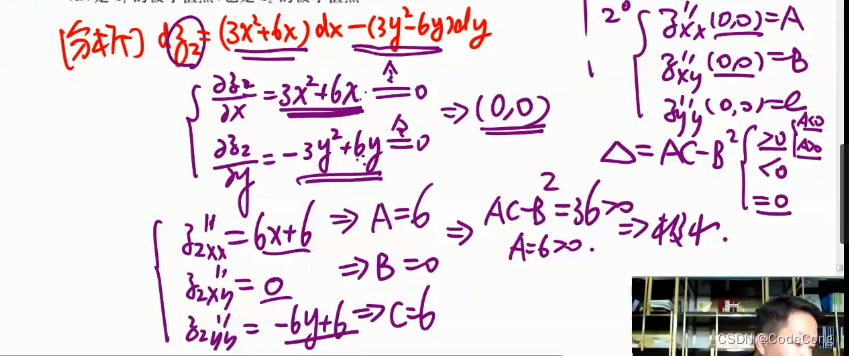 [分析] dz₂=(3x²+6x)dx-(3y²-6y)dy
∂z₂/∂x=3x²+6x=0
∂z₂/∂y=-3y²+6y=0
⇒(0,0)
z₂xx''=6x+6⇒A=6
z₂xy''=0⇒B=0
z₂yy''=-6y+6⇒C=6
⇒AC-B²=36>0
A=6>0.
⇒极小.
2°
z''xx(0,0)=A
z''xy(0,0)=B
z''yy(0,0)=C
Δ=AC-B²
>0
A<0
A>0
<0
=0
CSDN @CodeCong